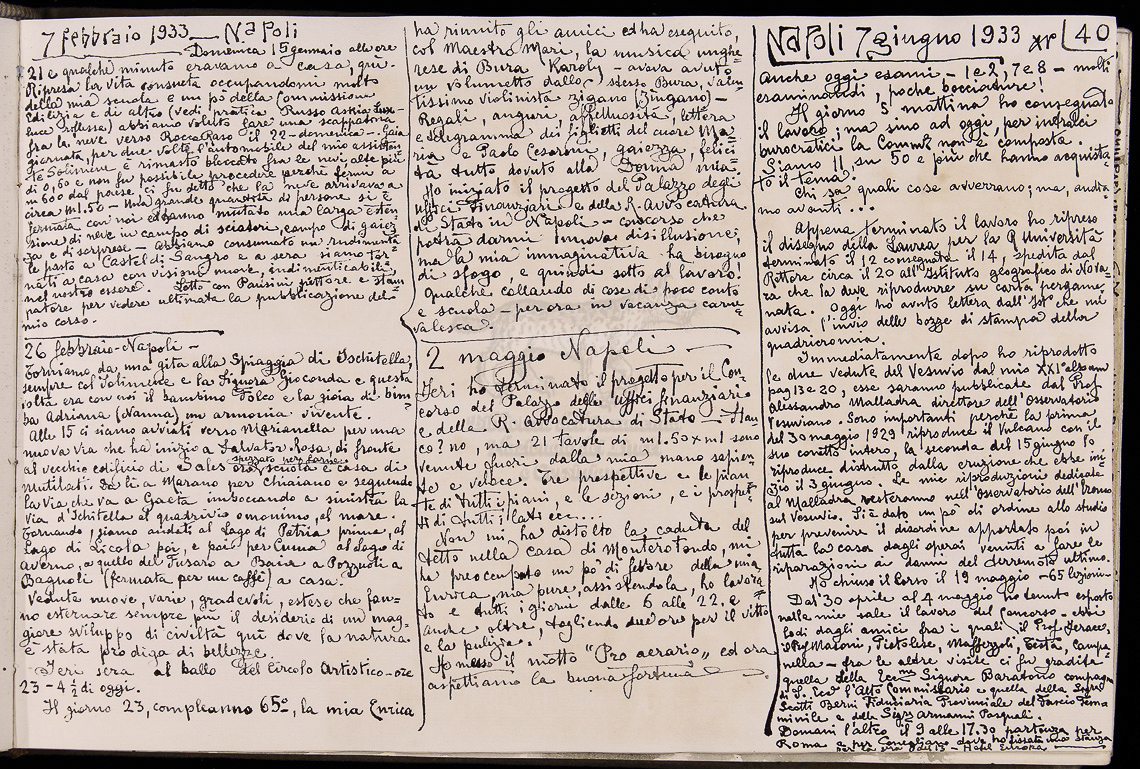 7 febbraio 1933 — Napoli
Domenica 15 gennaio alle ore
21 e qualche minuto eravamo a casa, qui.
Ripresa la vita consueta occupandomi molto
della mia scuola e un pò della Commissione
Edilizia e di altro (vedi pratica Russo
abbiamo voluto fare una scappata
fra la neve verso Roccaraso il 22 - domenica - Gaia
giornata, per due volte l'automobile del mio assisten
te Solimene è rimasto bloccato fra le nevi alte più
di 0,60 e non fu possibile procedere perchè fermi a
m 600 dal paese, ci fu detto che la neve arrivava a
circa m 1.50 - Una grande quantità di persone si è
fermata con noi ed hanno mutato una larga esten
sione di neve in campo di sciatori, campo di gaiez
za e di sorprese - Abbiamo consumato un rudimenta
le pasto a Castel di Sangro e a sera siamo tor
nati a casa con visioni nuove, indimenticabili,
nel nostro essere. Sotto con Pansini pittore e stam
patore per vedere ultimata la pubblicazione del
mio corso.
26 febbraio - Napoli -
Torniamo da una gita alla Spiaggia di Ischitella,
sempre col Solimene e la Signora Gioconda e questa
volta era con noi il bambino Tolco e la gioia di bim
ba Adriana (Nanna) un armonia vivente.
Alle 15 ci siamo avviati verso Marianella per una
nuova via che ha inizio a Salvator Rosa, di fronte
al vecchio edificio di Sales ora, scuola e casa di
Mutilati. Da lì a Marano per Chiaiano e seguendo
la via che va a Gaeta imboccando a sinistra la
Via d'Ischitella al quadrivio omonimo, al mare.
Tornando, siamo andati al Lago di Patria prima, al
Lago di Licola poi, e poi per Cuma al Lago di
Averno, a quello del Fusaro a Baia a Pozzuoli a
Bagnoli (fermata per un caffè) a casa.
Vedute nuove, varie, gradevoli, estese che fan
no esternare sempre più il desiderio di un mag
giore sviluppo di civiltà qui dove la natura
è stata prodiga di bellezze.
Ieri sera al ballo del Circolo Artistico - ore
23 - 4 ½ di oggi.
Il giorno 23, compleanno 65º, la mia Enrica
ha riunito gli amici ed ha eseguito,
col Maestro Mari, la musica unghe
rese di Bura Karoly - aveva avuto
un volumetto dallo stesso Bura, valen
tissimo violinista zigano (Zingano) -
Regali, auguri, affettuosità, lettera
e telegramma dei figlietti del cuore Ma
ria e Paolo Cesarini, gaiezza, felici
tà tutto dovuto alla Donna mia.
Ho iniziato il progetto del Palazzo degli
uffici Finanziari e della R. Avvocatura
di Stato in Napoli - concorso che
potrà darmi nuova disillusione,
ma la mia immaginativa ha bisogno
di sfogo e quindi sotto al lavoro!
Qualche collaudo di cose di poco conto
e scuola - per ora in vacanza carne
valesca.
2 maggio Napoli -
Ieri ho terminato il progetto per il Con
corso del Palazzo delle uffici finanziari
e della R. Avvocatura di Stato - Stan
co? no, ma 21 tavole di m 1.50 x m 1 sono
venute fuori dalla mia mano sapien
te e veloce. Tre prospettive e le pian
te di tutti i piani, e le sezioni, e i prospet
ti di tutti i lati ecc....
Non mi ha distolto la caduta del
tetto nella casa di Monterotondo, mi
ha preoccupato un po' di febbre della mia
Enrica, ma pure, assistendola, ho lavora
to e tutti i giorni dalle 6 alle 22. e
anche oltre, togliendo due ore per il vitto
e la pulizia.
Ho messo il motto "Pro aerario" ed ora
aspettiamo la buona fortuna
Napoli 7 giugno 1933 XI 40
Anche oggi esami - 1 e 2, 7 e 8 - molti
esaminandi, poche bocciature!
Il giorno 5 mattina ho consegnato
il lavoro, ma sino ad oggi, per intralci
burocratici la Commne non è composta.
Siamo 11 su 50 e più che hanno acquista
to il tema!
Chi sa quali cose avverrano; ma, andia
mo avanti...
Appena terminato il lavoro ho ripreso
il disegno della Laurea per la R Università
terminato il 12 consegnato il 14, spedita dal
Rettore circa il 20 all'Istituto geografico di Nova
ra che la deve riprodurre su carta pergame
nata. Oggi ho avuto lettera dall'Ist che mi
avvisa l'invio delle bozze di stampa della
quadricromia.
Immediatamente dopo ho riprodotto
le due vedute del Vesuvio dal mio XXI album
pag 13 e 20, esse saranno pubblicate dal Prof
Alessandro Malladra direttore dell'Osservatorio
Vesuviano. Sono importanti perchè la prima
del 30 maggio 1929 riproduce il Vulcano con il
suo conetto intero, la seconda del 15 giugno lo
riproduce distrutto dalla eruzione che ebbe ini
zio il 3 giugno. Le mie riproduzioni dedicate
al Malladra resteranno nell'Osservatorio dell'Eremo
sul Vesuvio. Si è dato un po' di ordine allo studio
per prevenire il disordine apportato poi in
tutta la casa dagli operai venuti a fare le
riparazioni ai danni del terremoto ultimo.
Ho chiuso il corso il 19 maggio - 65 lezioni -
Dal 30 aprile al 4 maggio ho tenuto esposto
nelle mie sale il lavoro del Concorso - ebbi
lodi dagli amici fra i quali il Prof. Gerace,
il Prof Masoni, Pietolese, Maffezzoli, Testa, Campa
nella - fra le altre visite ci fu gradita
quella della Eccma Signora Baratono compagna
di S. Ecc l'Alto Commissario e quella della Sigra
Scotti Berni Fiduciaria Provinciale del Fascio Fem
minile e della Sigra Armanni Pasquali.
Domani l'altro il 9 alle 17.30 partenza per
Roma e per Conegliano dove ho fissato una stanza
Hotel Europa